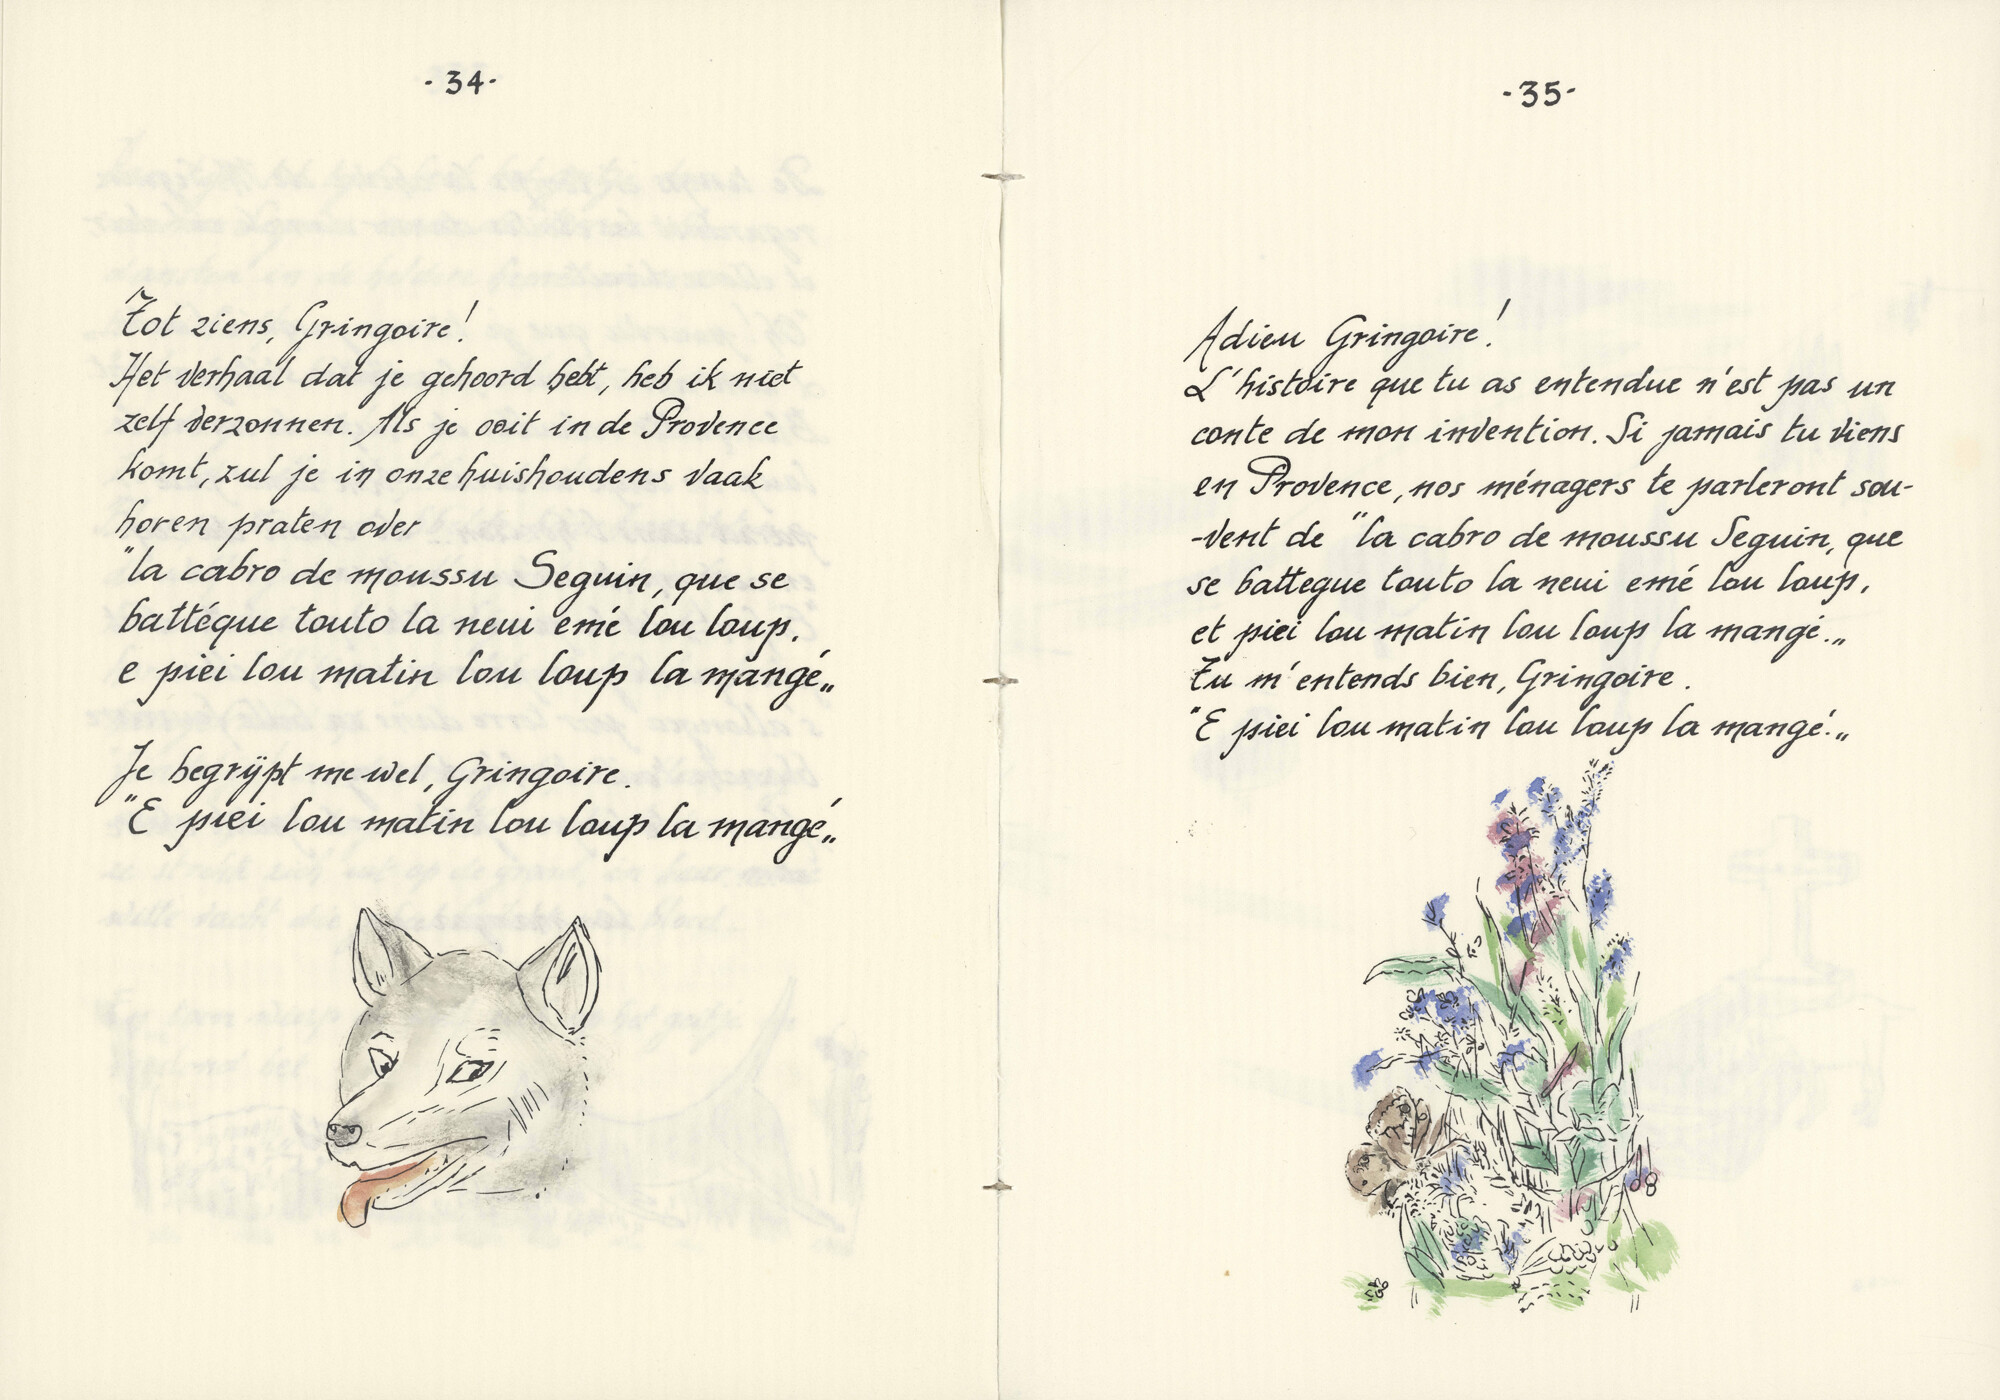 -34-
Tot ziens, Gringoire!
Het verhaal dat je gehoord hebt, heb ik niet
zelf verzonnen. Als je ooit in de Provence
komt, zul je in onze huishoudens vaak
horen praten over
"la cabro de moussu Seguin, que se
battéque touto la neui emé lou loup,
e piei lou matin lou loup la mangé„
Je begrijpt me wel, Gringoire.
"E piei lou matin lou loup la mangé„
-35-
Adieu Gringoire!
L'histoire que tu as entendue n'est pas un
conte de mon invention. Si jamais tu viens
en Provence, nos ménagers te parleront sou-
-vent de "la cabro de moussu Seguin, que
se battegue touto la neui emé lou loup,
et piei lou matin lou loup la mangé.„
Tu m'entends bien, Gringoire.
"E piei lou matin lou loup la mangé.„